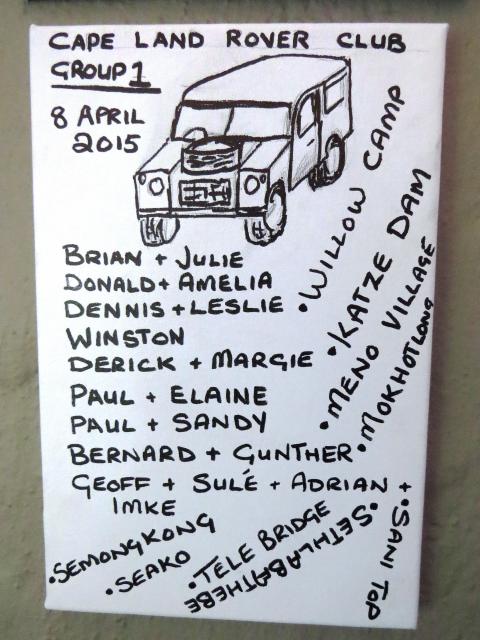 CAPE LAND ROVER CLUB
GROUP 1
8 APRIL
2015
BRIAN + JULIE
DONALD + AMELIA
DENNIS + LESLIE
WINSTON
DERICK + MARGIE
PAUL + ELAINE
PAUL + SANDY
BERNARD + GUNTHER
GEOFF + SULÉ + ADRIAN +
IMKE
•WILLOW CAMP
•KATZE DAM
•MENO VILLAGE
•MOKHOTLONG
•SANI TOP
•SETHLABATHEBE
•TELE BRIDGE
•SEAKO
•SEMONGKONG